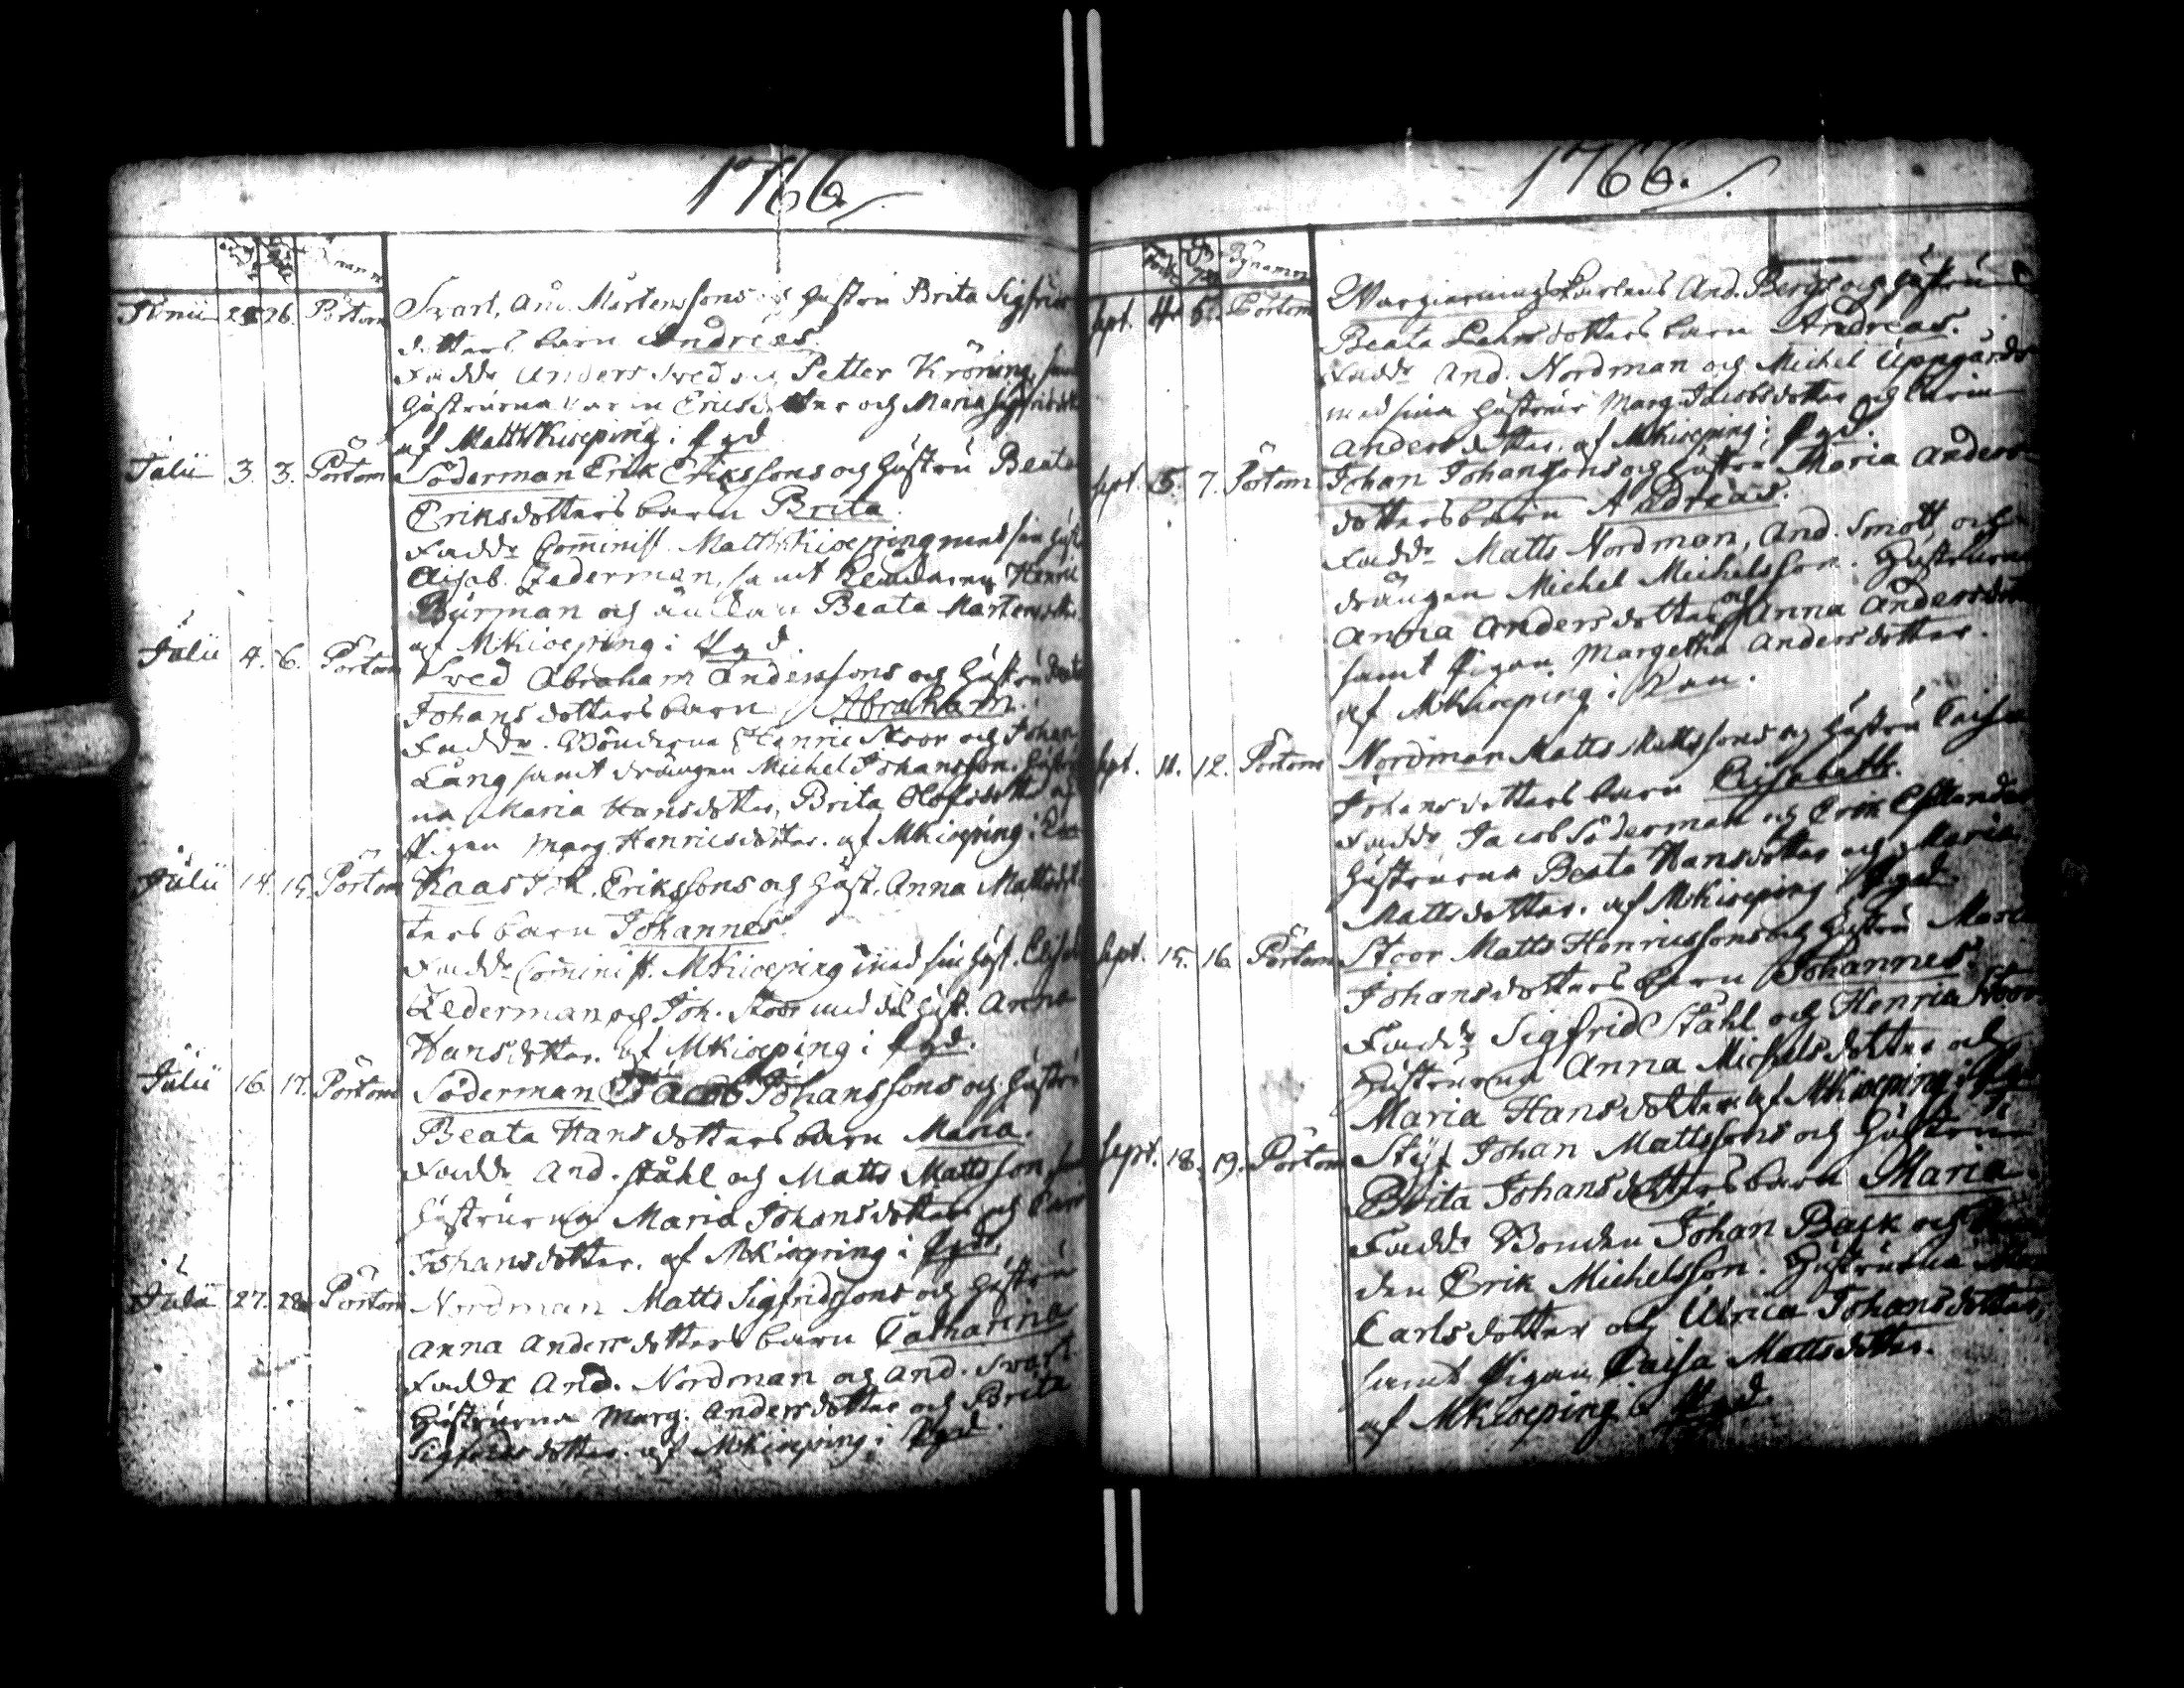 1766.
Junii 25 26. Pörtom Svart, And. Mårtenssons och hustru Brita Sigfrids
dotters barn Andreas.
Fadd. Anders Sved och Petter Kröning, samt
hustrurna Karin Ericsdotter och Maria Sigfridsdott
af Matth Kioeping i kyrk
Julii 3. 3. Pörtom Söderman Erik Erikssons och hustru Beata
Eriksdotters barn Brita.
Fadd. Comminist. Matth Kioeping med sin hust
Elisab. Zederman, samt Henric
Burman och Beata Mårtensdr
af MKioeping i
Julii 4. 6. Pörtom Sved Abraham Anderssons och hustru Beata
Johansdotters barn Abraham.
Fadd. Bönderna Henric Stoor och Johan
Lång samt drängen Michel Johansson. hustrur
na Maria Hansdotter, Brita Olofsdotter och
Pigan Marg. Henricsdotter. af MKioeping i
Julii 14. 15. Pörtom Kaas Joh. Erikssons och hust. Anna Mattsdot
ters barn Johannes.
Fadd. Comminist. MKioeping med sin hust. Elisab
Zederman och Joh. Stoor med des hust. Anna
Hansdotter. af MKioeping i
Julii 16. 17. Pörtom Söderman Jacob Johanssons och hustru
Beata Hansdotters barn Maria.
Fadd. And. Ståhl och Matts Mattsson, samt
hustrurna Maria Johansdotter och Carin
Johansdotter. af MKioeping i
Julii 27. 28. Pörtom Nordman Matts Sigfridssons och hustru
Anna Andersdotters barn Catharina
Fadd. And. Nordman och And. Svart
Hustrurna Marg. Andersdotter och Brita
Sigfridsdotter. af MKioeping i
1766.
Bynamn
Sept. 4. 5. Pörtom Wargieringskarlens And. Bergs och hustru
Beata Lahrsdotters barn Andreas.
Fadd. And. Nordman och Michel Uppgårds
med sina hustrur Marg. Jacobsdotter och Carin
Andersdotter. af MKioeping i
Sept. 5. 7. Pörtom Johan Johanssons och hustru Maria Anders
dotters barn Andreas.
Fadd. Matts Nordman, And. Smått, och
drängen Michel Michelsson. Hustrurna
Anna Andersdotter och Anna Andersdott
samt Pigan Margetha Andersdotter.
af MKioeping i
Sept. 11. 12. Pörtom Nordman Matts Mattssons och hustru Caisa
Johansdotters barn Elisabeth.
Fadd. Jacob Söderman och Erik Estlander
hustrurna Beata Hansdotter och Maria
Mattsdotter. af MKioeping i
Sept. 15. 16. Pörtom Stoor Matts Henricssons och hustru Maria
Johansdotters barn Johannes.
Fadd. Sigfrid Ståhl och Henric Stoor
hustrurna Anna Michelsdotter och
Maria Hansdotter af MKioeping i
Sept. 18. 19. Pörtom Styf Johan Mattssons och hustru
Brita Johansdotters barn Maria
Fadd. Bonden Johan Back och
den Erik Michelsson. Hustrurna
Carlsdotter och Ulrica Johansdotter,
samt Pigan Caisa Mattsdotter.
af MKioeping i